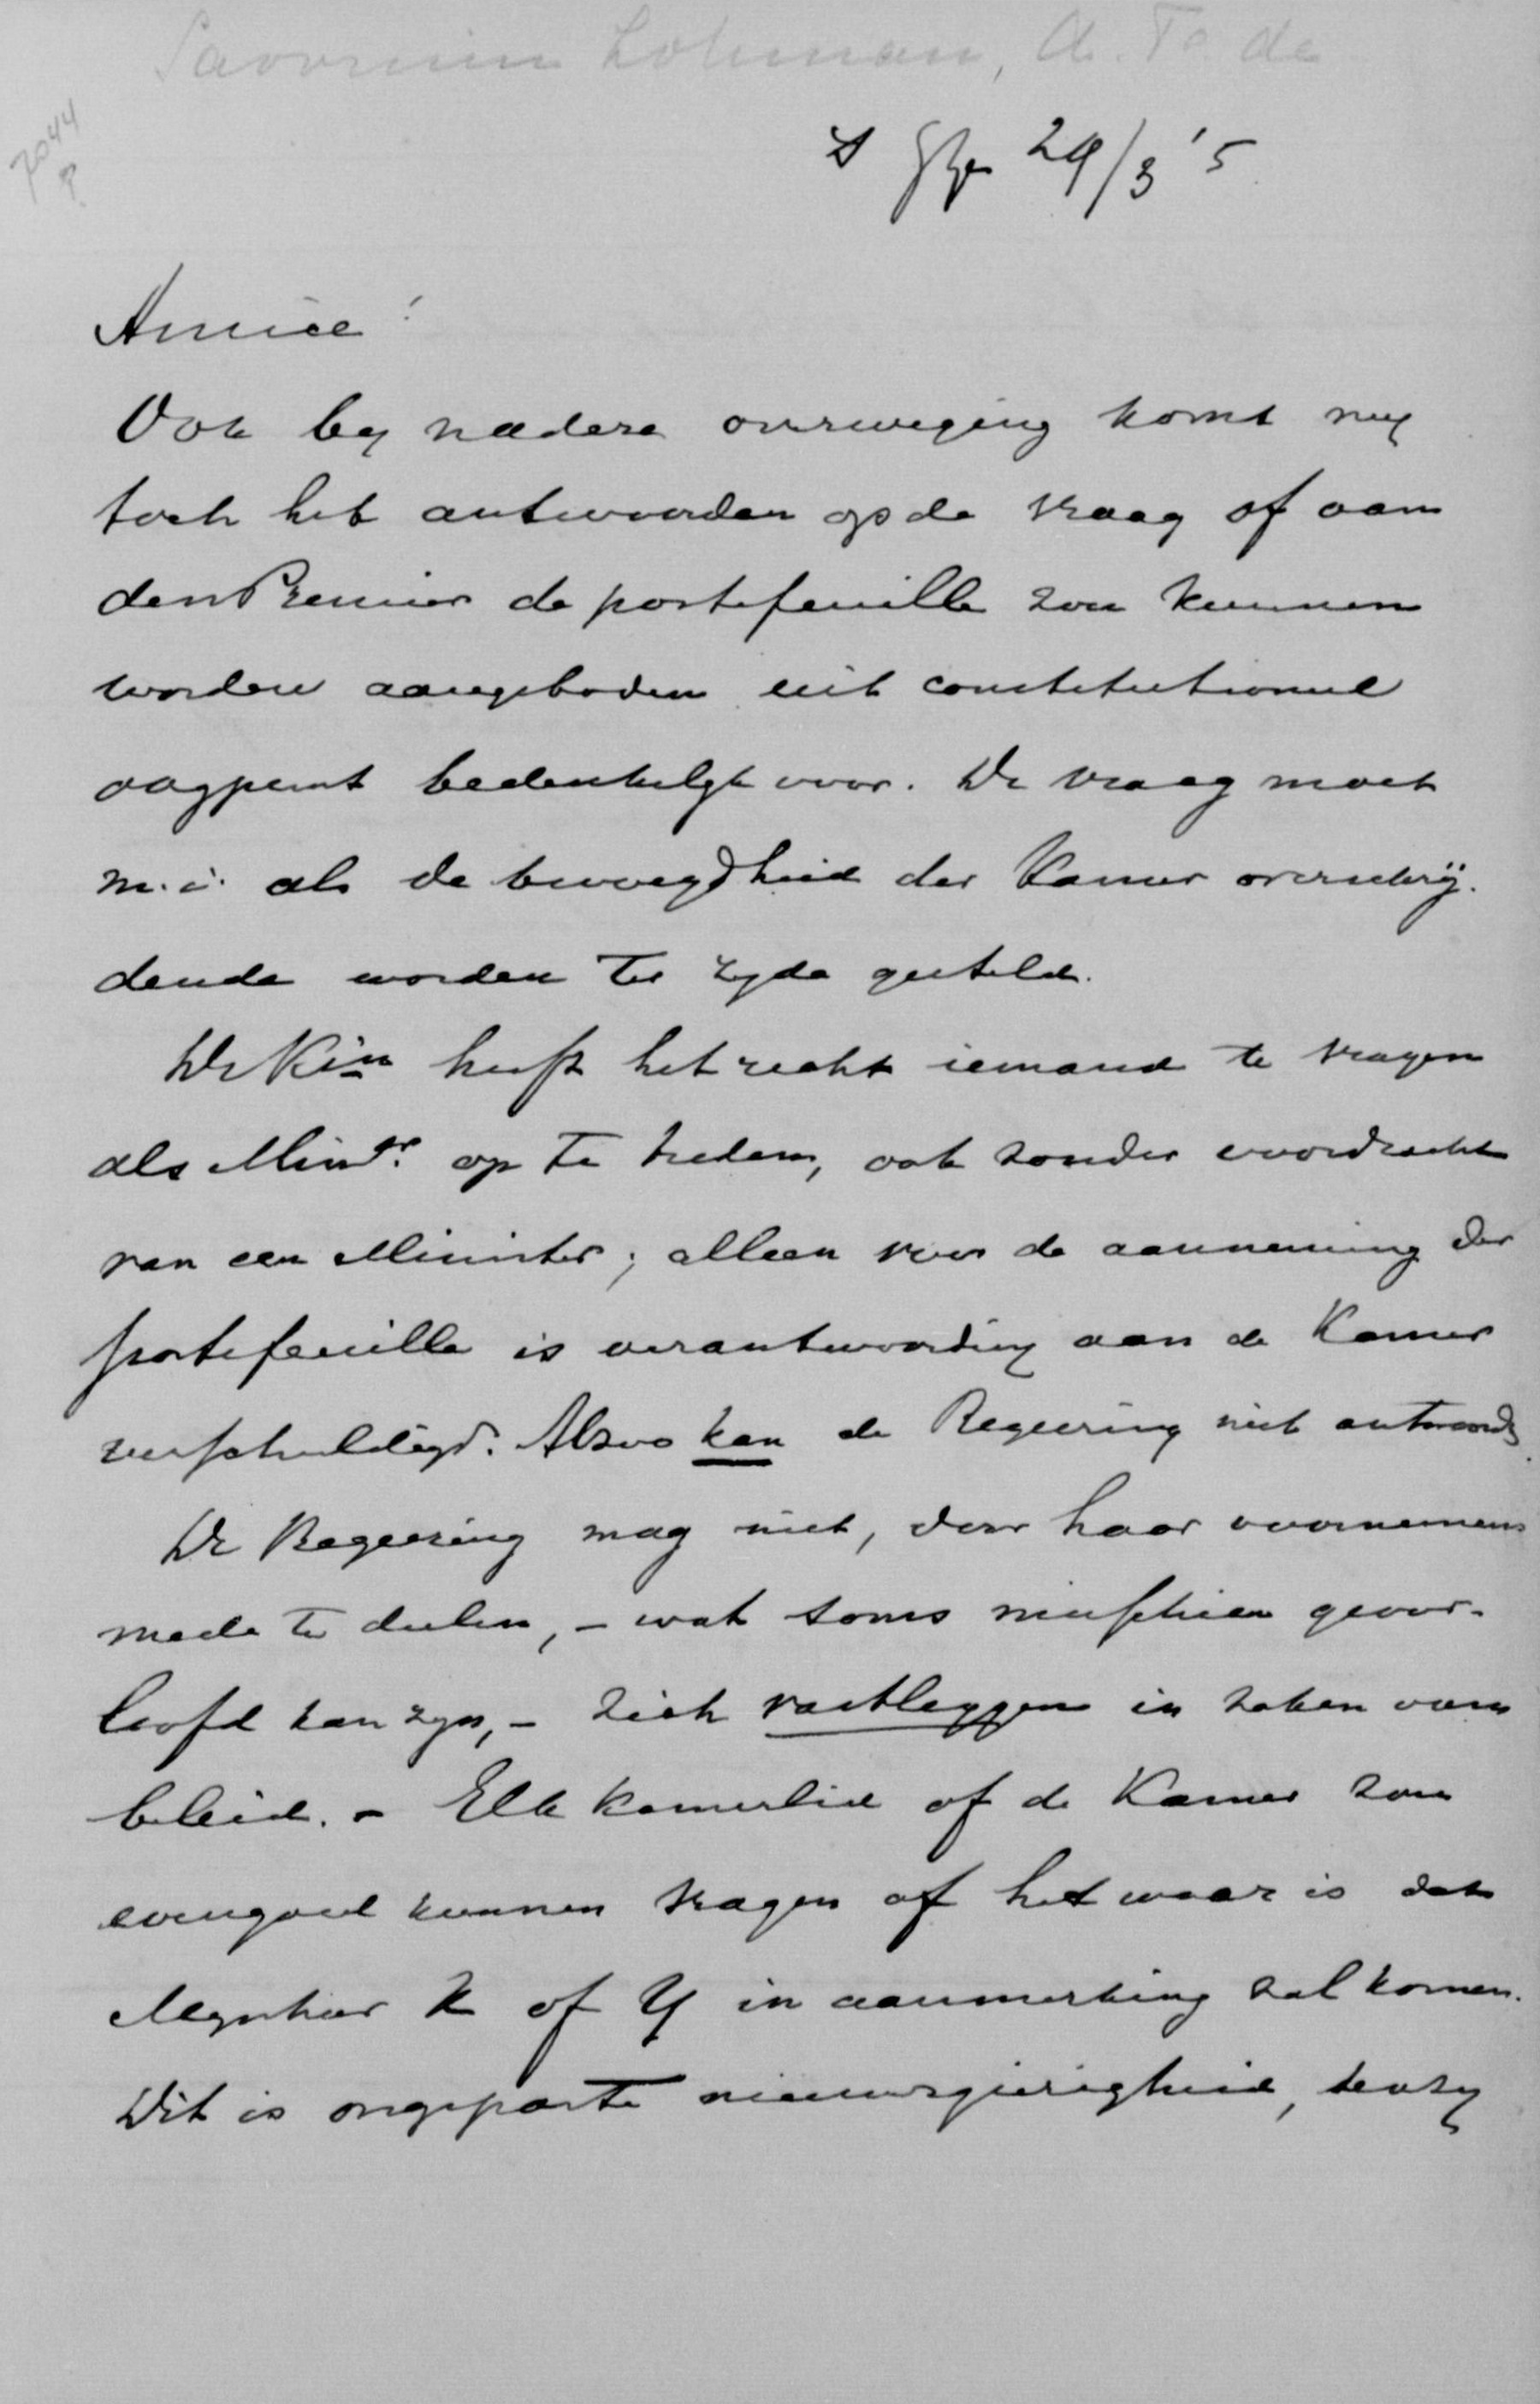 Savornin Lohman, A. F. de
7044
P.
's Ghe 29/3 '5
Amice!
Ook by nadere overweging komt my
toch het antwoorden op de vraag of aan
den Premier de portefeuille zou kunnen
worden aangeboden uit constitutioneel
oogpunt bedenkelyk voor. De vraag moet
m.i. als de bevoegdheid der Kamer overschrij-
dende worden ter zyde gesteld.
De Kin heeft het recht iemand te vragen
als Minr. op te treden, ook zonder voordracht
van een Minister; alleen voor de aanneming der
portefeuille is verantwoording aan de Kamer
verschuldigd. Alzoo kan de Regeering niet antwoorden.
De Regeering mag niet, door haar voornemens
mede te deelen, - wat soms misschien geoor-
loofd kan zyn, - zich vastleggen in zaken van
beleid. - Elk kamerlid of de Kamer zou
evengoed kunnen vragen of het waar is dat
Mynheer X of Y in aanmerking zal komen.
Dit is ongepaste nieuwsgierigheid, tenzy